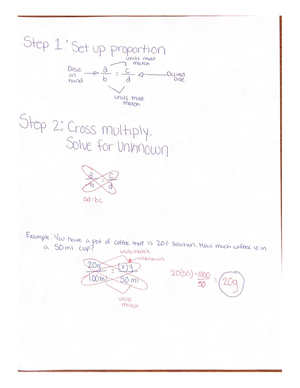 Step 1: Set up proportion
units must
match
Dose
on
hand
a = c
b d
Desired
Dose
units must
match
Step 2: Cross multiply.
Solve for Unknown
a = c
b d
ad=bc
Example: You have a pot of coffee that is 20% solution. How much coffee is in
a 50ml cup?
units match
unknown
20g = (x)g
100ml 50ml
units
match
20(50)=1000
50
20g